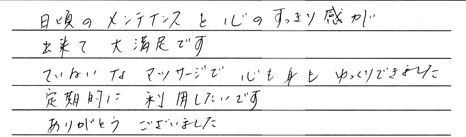 日頃のメンテナンスと心のすっきり感が
出来て大満足です
ていねいなマッサージで心も身もゆっくりできました
定期的に利用したいです
ありがとうございました